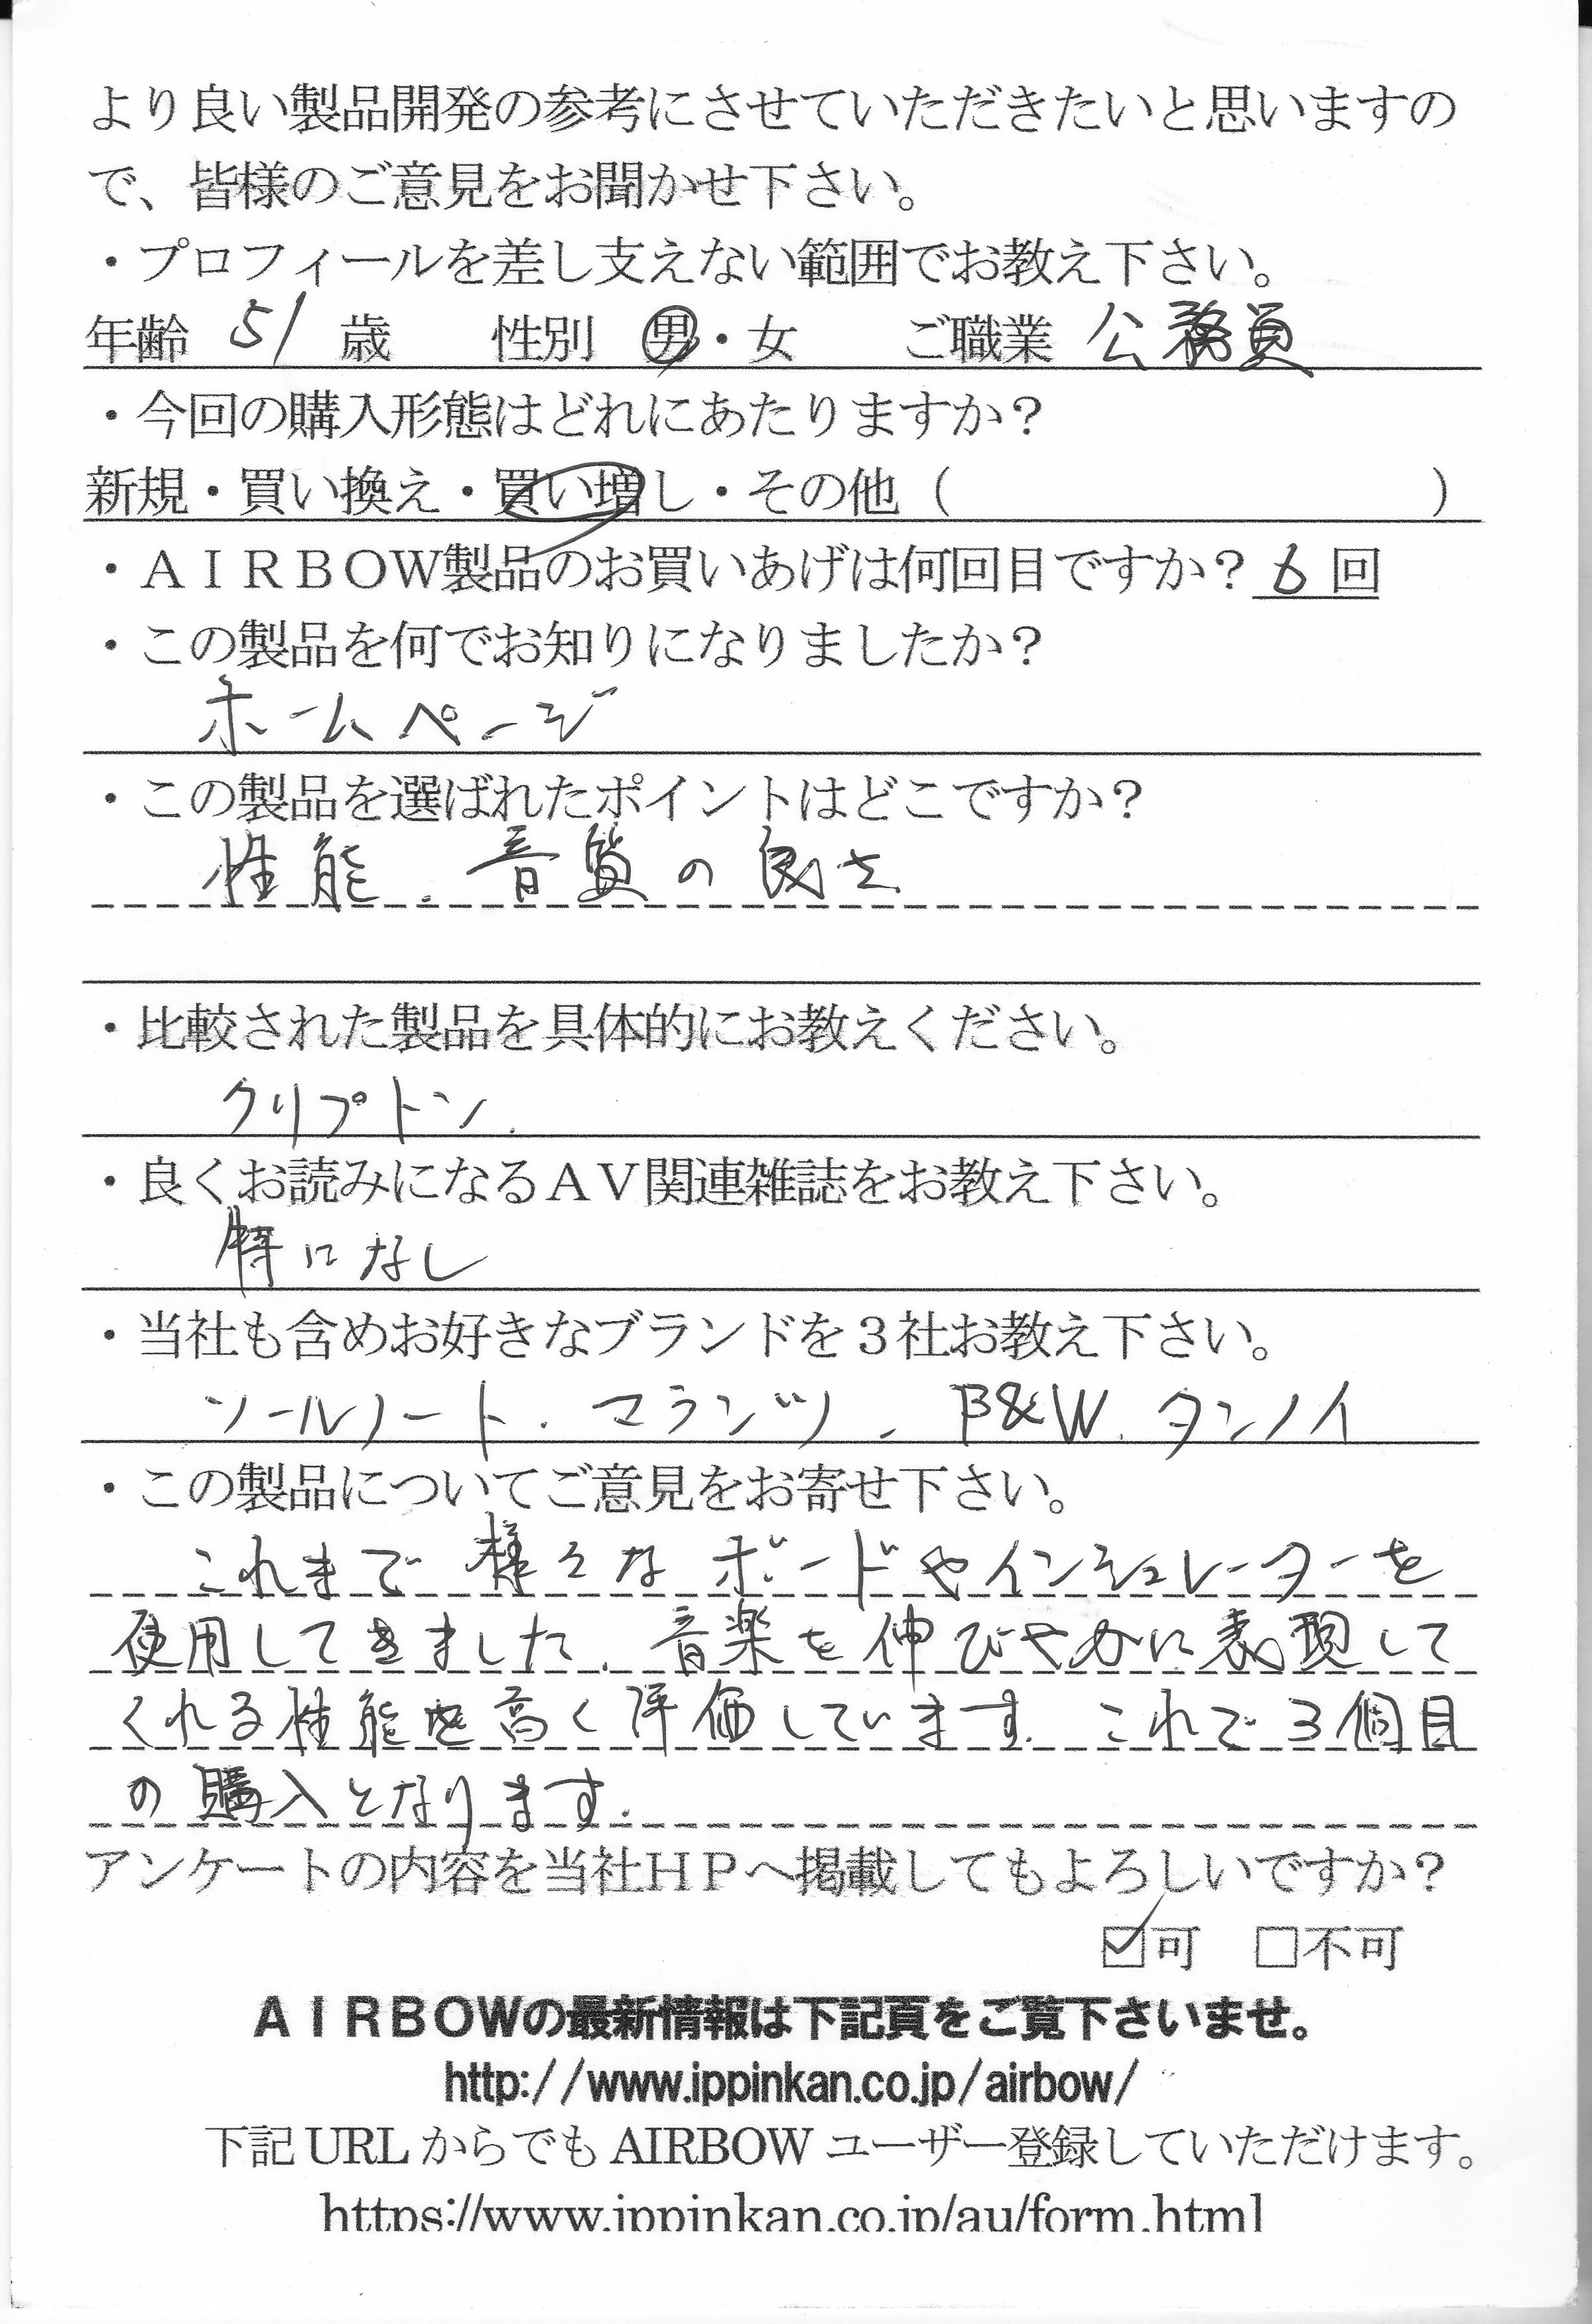 より良い製品開発の参考にさせていただきたいと思いますの
で、皆様のご意見をお聞かせ下さい。
・プロフィールを差し支えない範囲でお教え下さい。
年齢 51 歳 性別 男・女 ご職業 公務員
・今回の購入形態はどれにあたりますか？
新規・買い換え・買い増し・その他（ ）
・ＡＩＲＢＯＷ製品のお買いあげは何回目ですか？ 6 回
・この製品を何でお知りになりましたか？
ホームページ
・この製品を選ばれたポイントはどこですか？
性能．音質の良さ
・比較された製品を具体的にお教えください。
クリプトン．
・良くお読みになるＡＶ関連雑誌をお教え下さい。
特になし
・当社も含めお好きなブランドを３社お教え下さい。
ソールノート．マランツ、B&W．タンノイ
・この製品についてご意見をお寄せ下さい。
これまで様々なボードやインシュレーターを
使用してきました．音楽を伸びやかに表現して
くれる性能を高く評価しています．これで3個目
の購入となります．
アンケートの内容を当社ＨＰへ掲載してもよろしいですか？
☑可 □不可
ＡＩＲＢＯＷの最新情報は下記頁をご覧下さいませ。
http://www.ippinkan.co.jp/airbow/
下記 URL からでも AIRBOW ユーザー登録していただけます。
https://www.ippinkan.co.jp/au/form.html